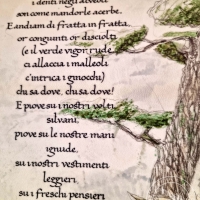 i denti negli alveoli
son come mandorle acerbe.
E andiam di fratta in fratta,
or congiunti or disciolti
(e il verde vigor rude
ci allaccia i malleoli
c'intrica i ginocchi)
chi sa dove, chi sa dove!
E piove su i nostri volti
silvani,
piove su le nostre mani
ignude,
su i nostri vestimenti
leggieri,
su i freschi pensieri